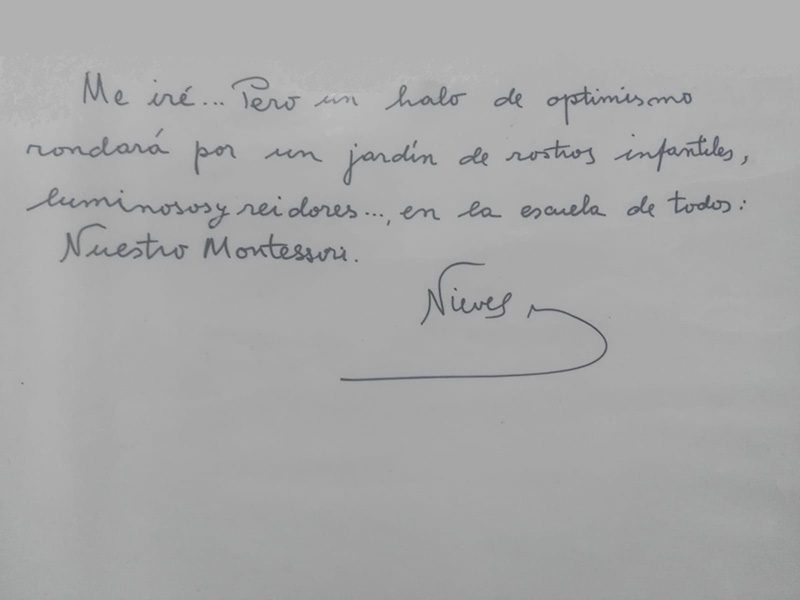 Me iré... Pero un halo de optimismo
rondará por un jardín de rostros infantiles,
luminosos y reidores..., en la escuela de todos:
Nuestro Montessori.
Nieves